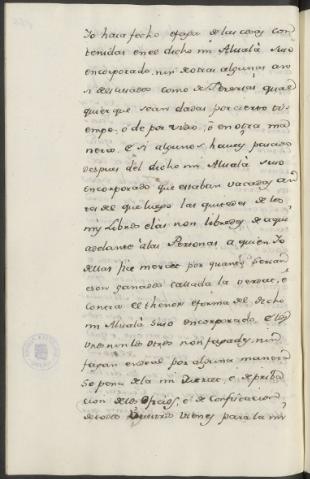 Yo haia fecho efaga de las cosas con
tenidas en el dicho mi Alualá suso
encorporado, nin de otras algunas a
si de Juros como de Personas qual
quier que sean dadas por cierto ti
empo, ó de por vida, ó en otra ma
nera, e si algunos haueis pasado
despues del dicho mi Alualá suso
encorporado que estaban vacados an
tes del que luego las quitedes de los
mis Libros e las non libredes de aqui
adelante á las Personas á quien Yo
dellas fice merced por quanto
eron ganadas callada la verdad, é
contra el thenor e forma del dicho
mi Alualá suso encorporado, e los
Unos nin los otros non fagades, nin
fagan endeal por alguna manera
so pena de la mi merced, é de priba
cion de los Oficios, é de confiscacion
de todos Vuestros bienes para la mi